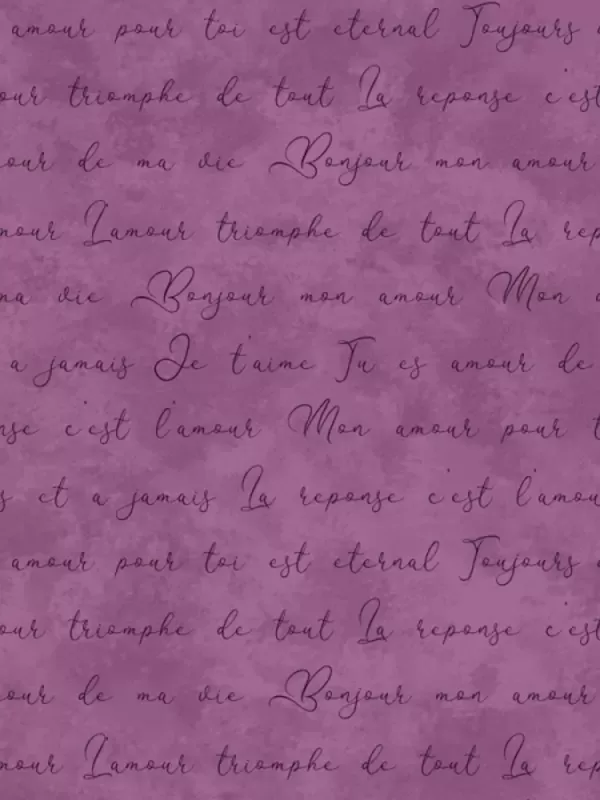 amour pour toi est eternal Toujours
our triomphe de tout La reponse c'est
our de ma vie Bonjour mon amour
mour Lamour triomphe de tout La rep
ma vie Bonjour mon amour Mon
a jamais Je t'aime Tu es amour de
nse c'est l'amour Mon amour pour t
s et a jamais La reponse c'est l'amou
amour pour toi est eternal Toujours
our triomphe de tout La reponse c'est
our de ma vie Bonjour mon amour
mour Lamour triomphe de tout La rep